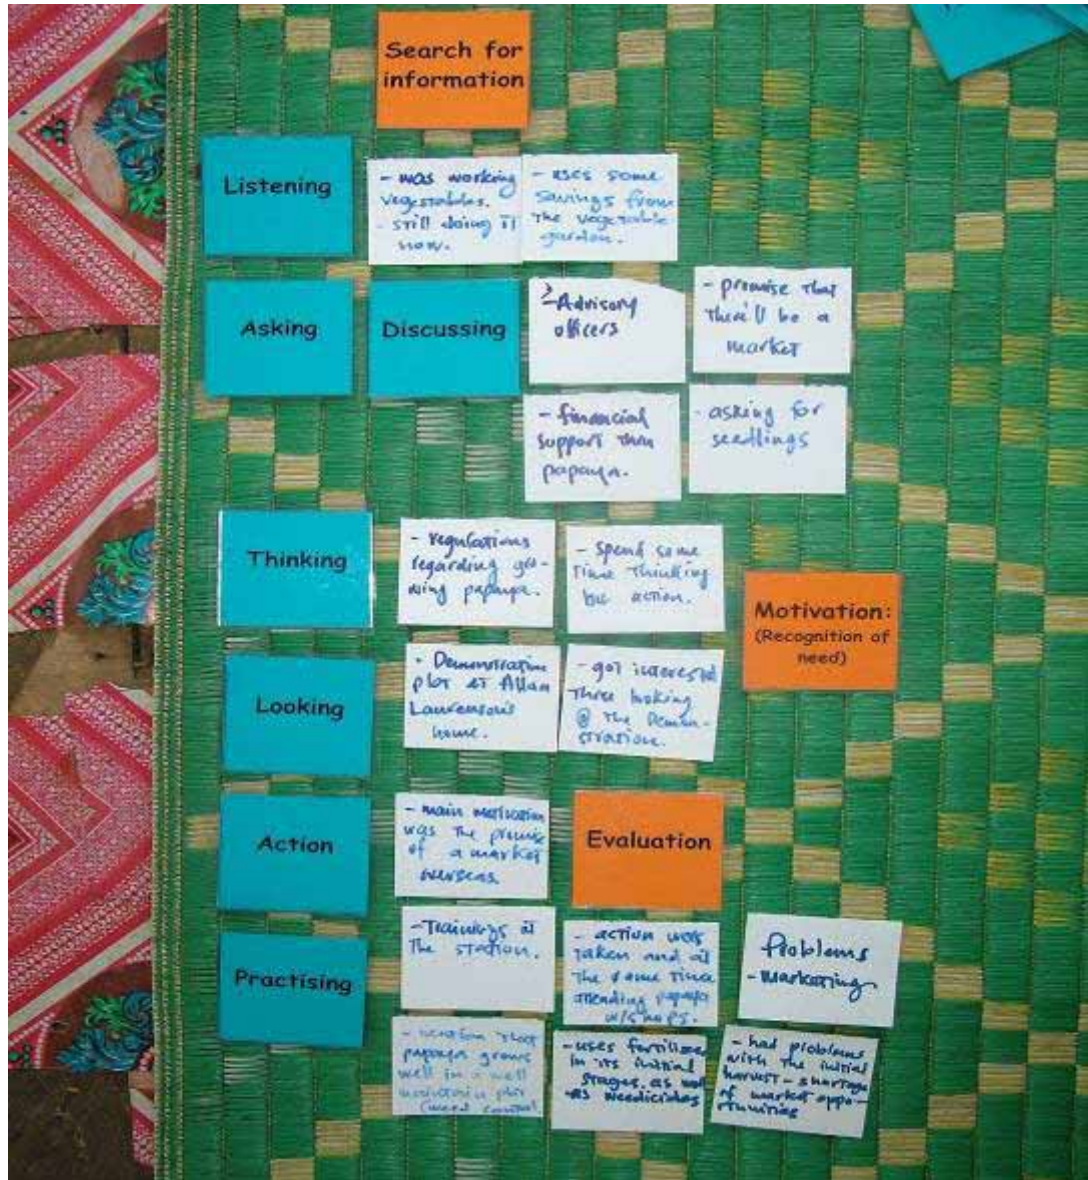 Search for
information
Listening
- was working
vegetables.
- still doing it
now.
- uses some
savings from
the vegetable
garden.
Asking
Discussing
- Advisory
officers
- promise that
there'll be a
market
- financial
support thru
papaya.
- asking for
seedlings
Thinking
- regulations
regarding gro-
wing papaya.
- spend some
time thinking
action.
Motivation:
(Recognition of
need)
Looking
- Demonstration
plot at Allan
home.
- got interested
looking
@ the Demon-
stration.
Action
- main motivation
was the promise
of a market
overseas.
Evaluation
Practising
- Trainings at
the station.
- action was
taken and at
the same time
attending papaya
w/shops.
Problems
- marketing
that
papaya grows
well in a well
plot
(weed control
- uses fertilizer
in its initial
stages. as well
as weedicides
- had problems
with the initial
harvest - shortage
of market oppo-
rtunities